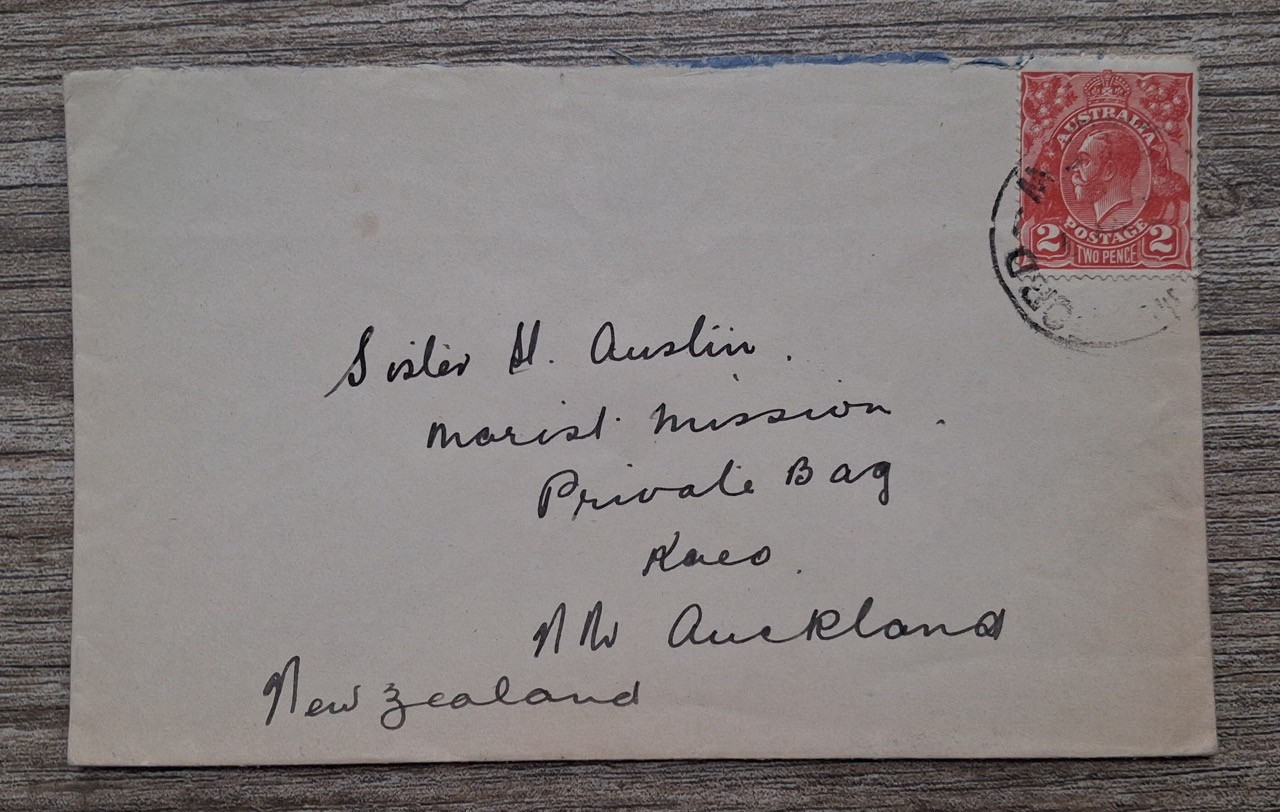 AUSTRALIA
2 POSTAGE 2
TWO PENCE
Sister H. Austin.
Marist Mission.
Private Bag
Kaeo.
Auckland
New Zealand